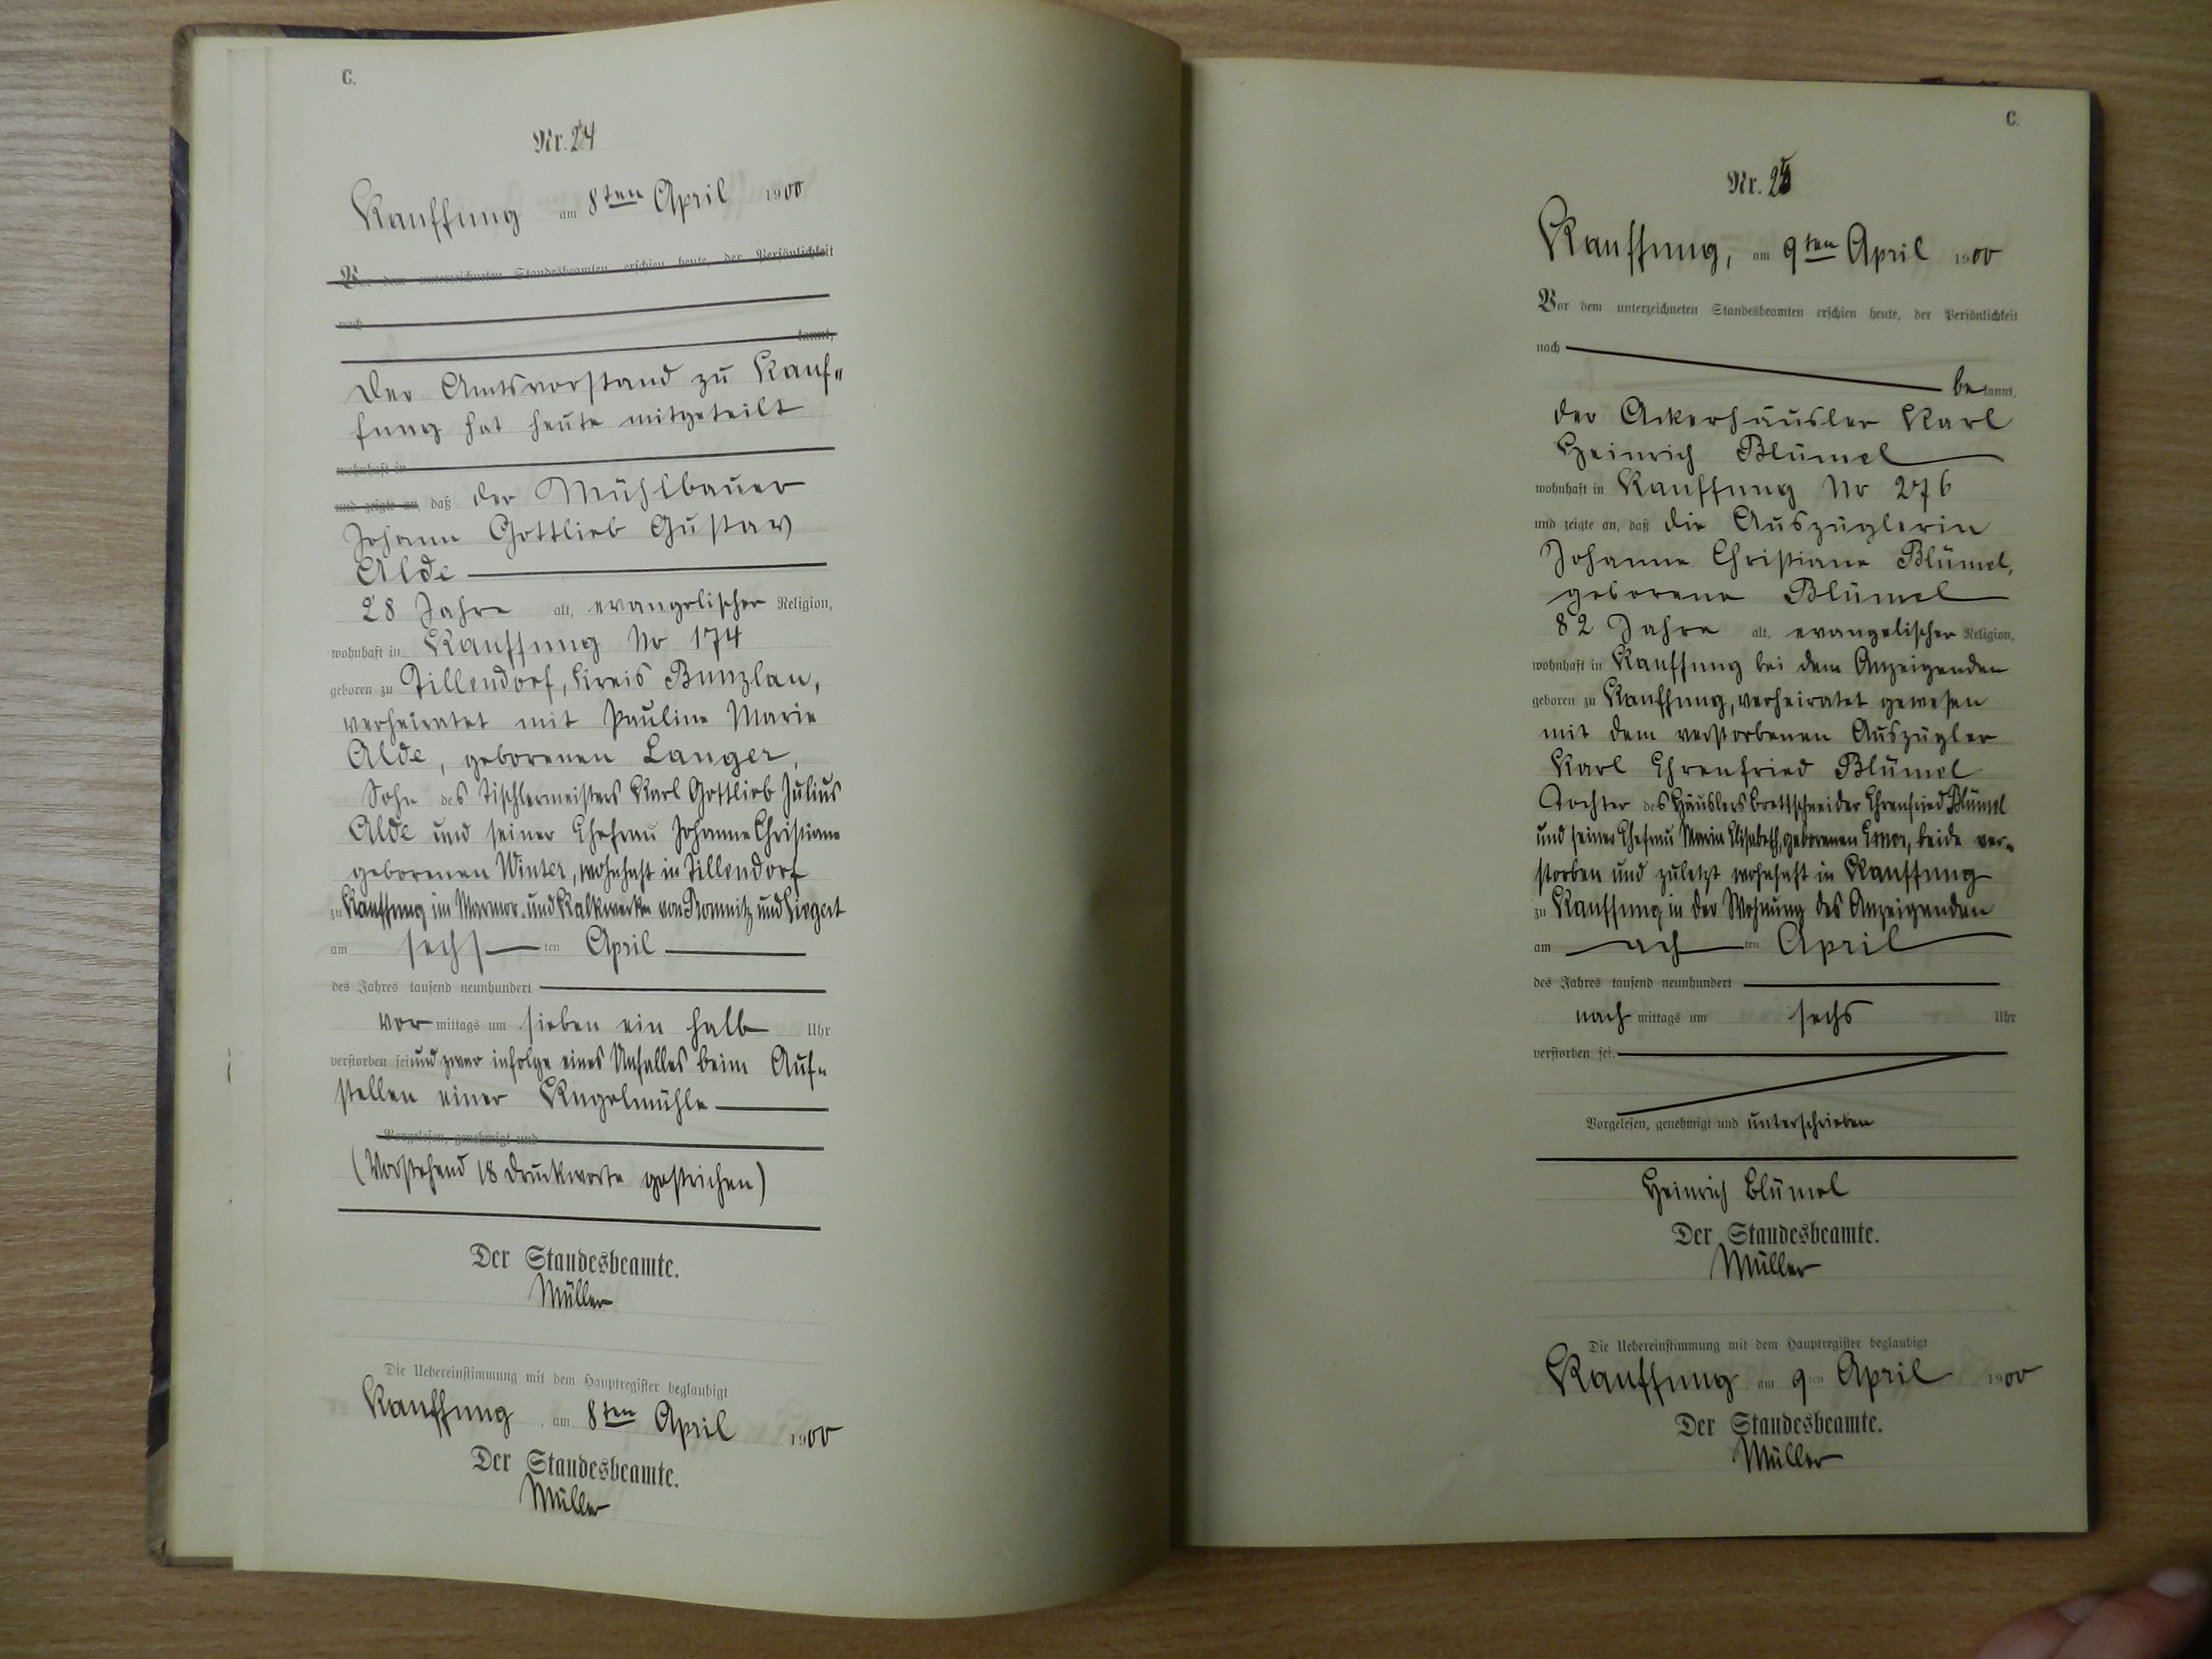 C.
Nr. 24
Kauffung am 8ten April 1900
Vor dem unterzeichneten Standesbeamten erschien heute, der Persönlichkeit
nach
kannt,
Der Amtsvorstand zu Kauf-
fung hat heute mitgeteilt
wohnhaft in
und zeigte an, daß der Mühlbauer
Johann Gottlieb Gustav
Alde
28 Jahre alt, evangelischer Religion,
wohnhaft in Kauffung No 174
geboren zu Tillendorf, Kreis Bunzlau,
verheiratet mit Pauline Marie
Alde, geborenen Langer,
Sohn des Tischlermeisters Karl Gottlieb Julius
Alde und seiner Ehefrau Johanne Christiane
geborenen Winter, wohnhaft in Tillendorf
zu Kauffung im Marmor- und Kalkwerke von Promnitz und Siegert
am sechsten April
des Jahres tausend neunhundert
vormittags um sieben ein halb Uhr
verstorben sei und zwar infolge eines Unfalles beim Auf-
stellen einer Kugelmühle
Vorgelesen, genehmigt und
(Vorstehend 18 Druckworte gestrichen)
Der Standesbeamte.
Müller
Die Uebereinstimmung mit dem Hauptregister beglaubigt
Kauffung, am 8ten April 1900
Der Standesbeamte.
Müller
C.
Nr. 25
Kauffung, am 9ten April 1900
Vor dem unterzeichneten Standesbeamten erschien heute, der Persönlichkeit
nach
bekannt,
der Ackerhäusler Karl
Heinrich Blümel
wohnhaft in Kauffung No 276
und zeigte an, daß die Auszüglerin
Johanne Christiane Blümel,
geborene Blümel
82 Jahre alt, evangelischer Religion,
wohnhaft in Kauffung bei dem Anzeigenden
geboren zu Kauffung, verheiratet gewesen
mit dem verstorbenen Auszügler
Karl Ehrenfried Blümel
Tochter des Häuslers Brettschneider Ehrenfried Blümel
und seiner Ehefrau Marie Elisabeth, geborenen beide ver-
storben und zuletzt wohnhaft in Kauffung
zu Kauffung in der Wohnung des Anzeigenden
am achten April
des Jahres tausend neunhundert
nachmittags um sechs Uhr
verstorben sei.
Vorgelesen, genehmigt und unterschrieben
Heinrich Blümel
Der Standesbeamte.
Müller
Die Uebereinstimmung mit dem Hauptregister beglaubigt
Kauffung am 9ten April 1900
Der Standesbeamte.
Müller